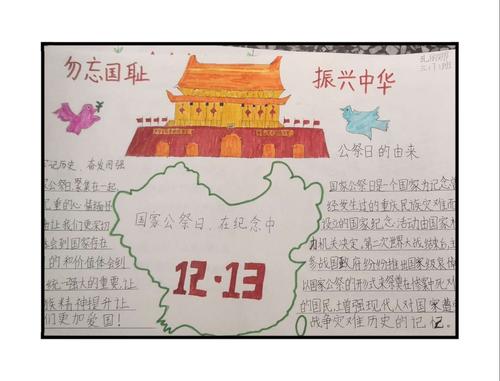 勿忘国耻
振兴中华
公祭日的由来
记历史、奋发图强
公祭日,聚集在一起,
重的心
让我们更深切
会到国家存在
的和价值体会到
统一强大的重要,让
族精神提升让
们更加爱国!
国家公祭日,在纪念中
12·13
国家公祭日是一个国家为纪念
经发生过的重庆民族灾难而
设立的国家纪念活动由国家
力机关决定,第二次世界大战结束后,主
参战国政府纷纷推出国家级哀悼
以国家公祭的形式来祭奠在惨案中死难
的国民上增强现代人对国家遭
战争灾难历史的记忆。